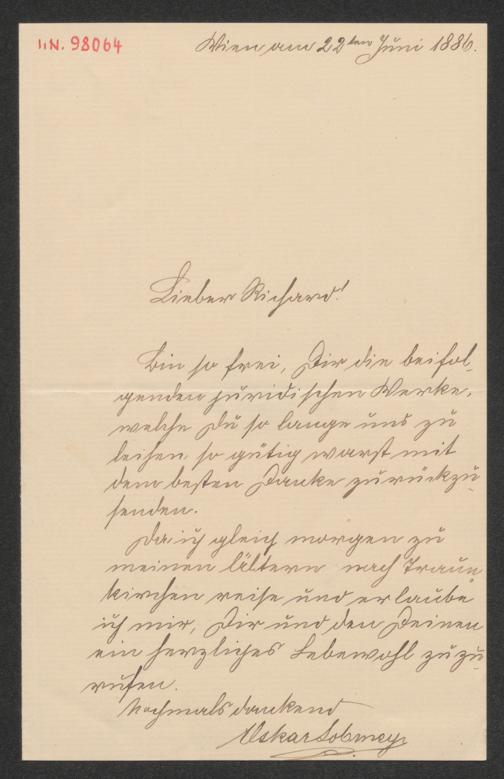 I.N. 98064
Wien am 22ten Juni 1886.
Lieber Richard!
Bin so frei, Dir die beifol-
genden juridischen Werke,
welche Du so lange uns zu
leihen so gütig warst mit
dem besten Danke zurückzu-
senden.
Da ich gleich morgen zu
meinen Ältern nach Traun-
kirchen reise und erlaube
ich mir, Dir und den Deinen
ein herzliches Lebewohl zuzu-
rufen.
Nochmals dankend
Oskar Lobmeyr